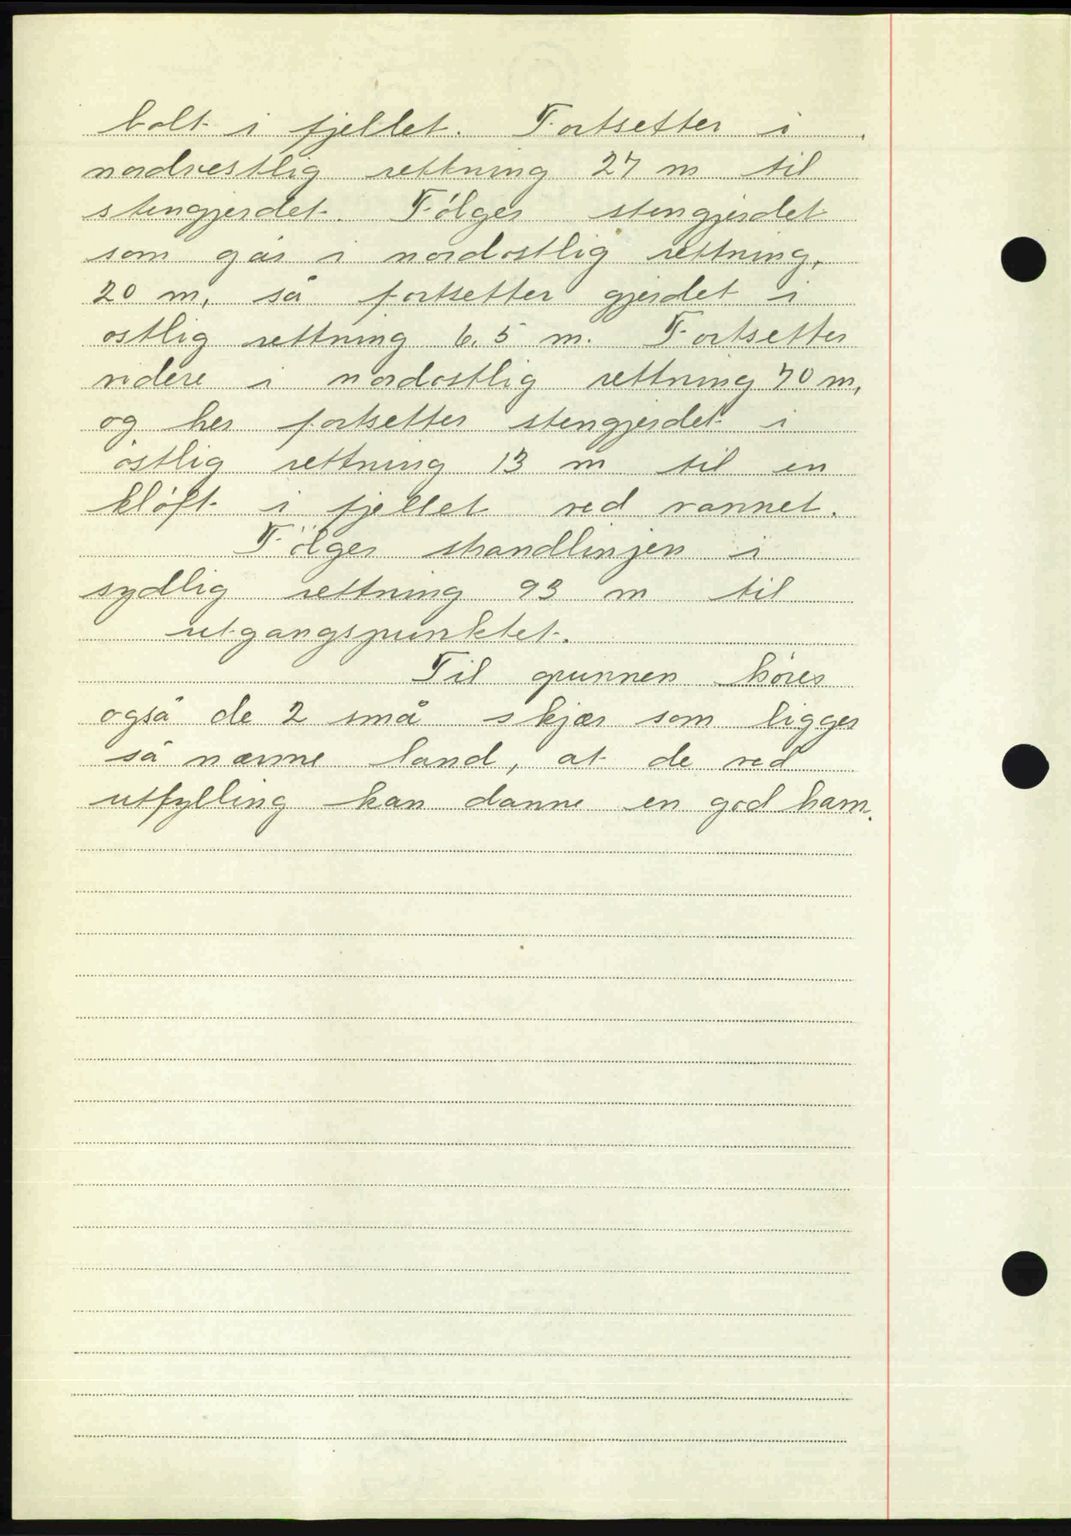 bolt i fjellet. Fortsetter i
nordvestlig rettning 27 m til
stengjerdet. Følger stengjerdet
som går i nordostlig rettning,
20 m, så fortsetter gjerdet i
ostlig rettning 6,5 m. Fortsetter
videre i nordostlig rettning 70 m,
og her fortsetter stengjerdet i
östlig rettning 13 m til en
kløft i fjellet ved vannet.
Følger strandlinjen i
sydlig rettning 93 m til
utgangspunktet.
Til grunnen höres
også de 2 små skjær som ligger
så nærme land, at de ved
utfylling kan danne en god havn.